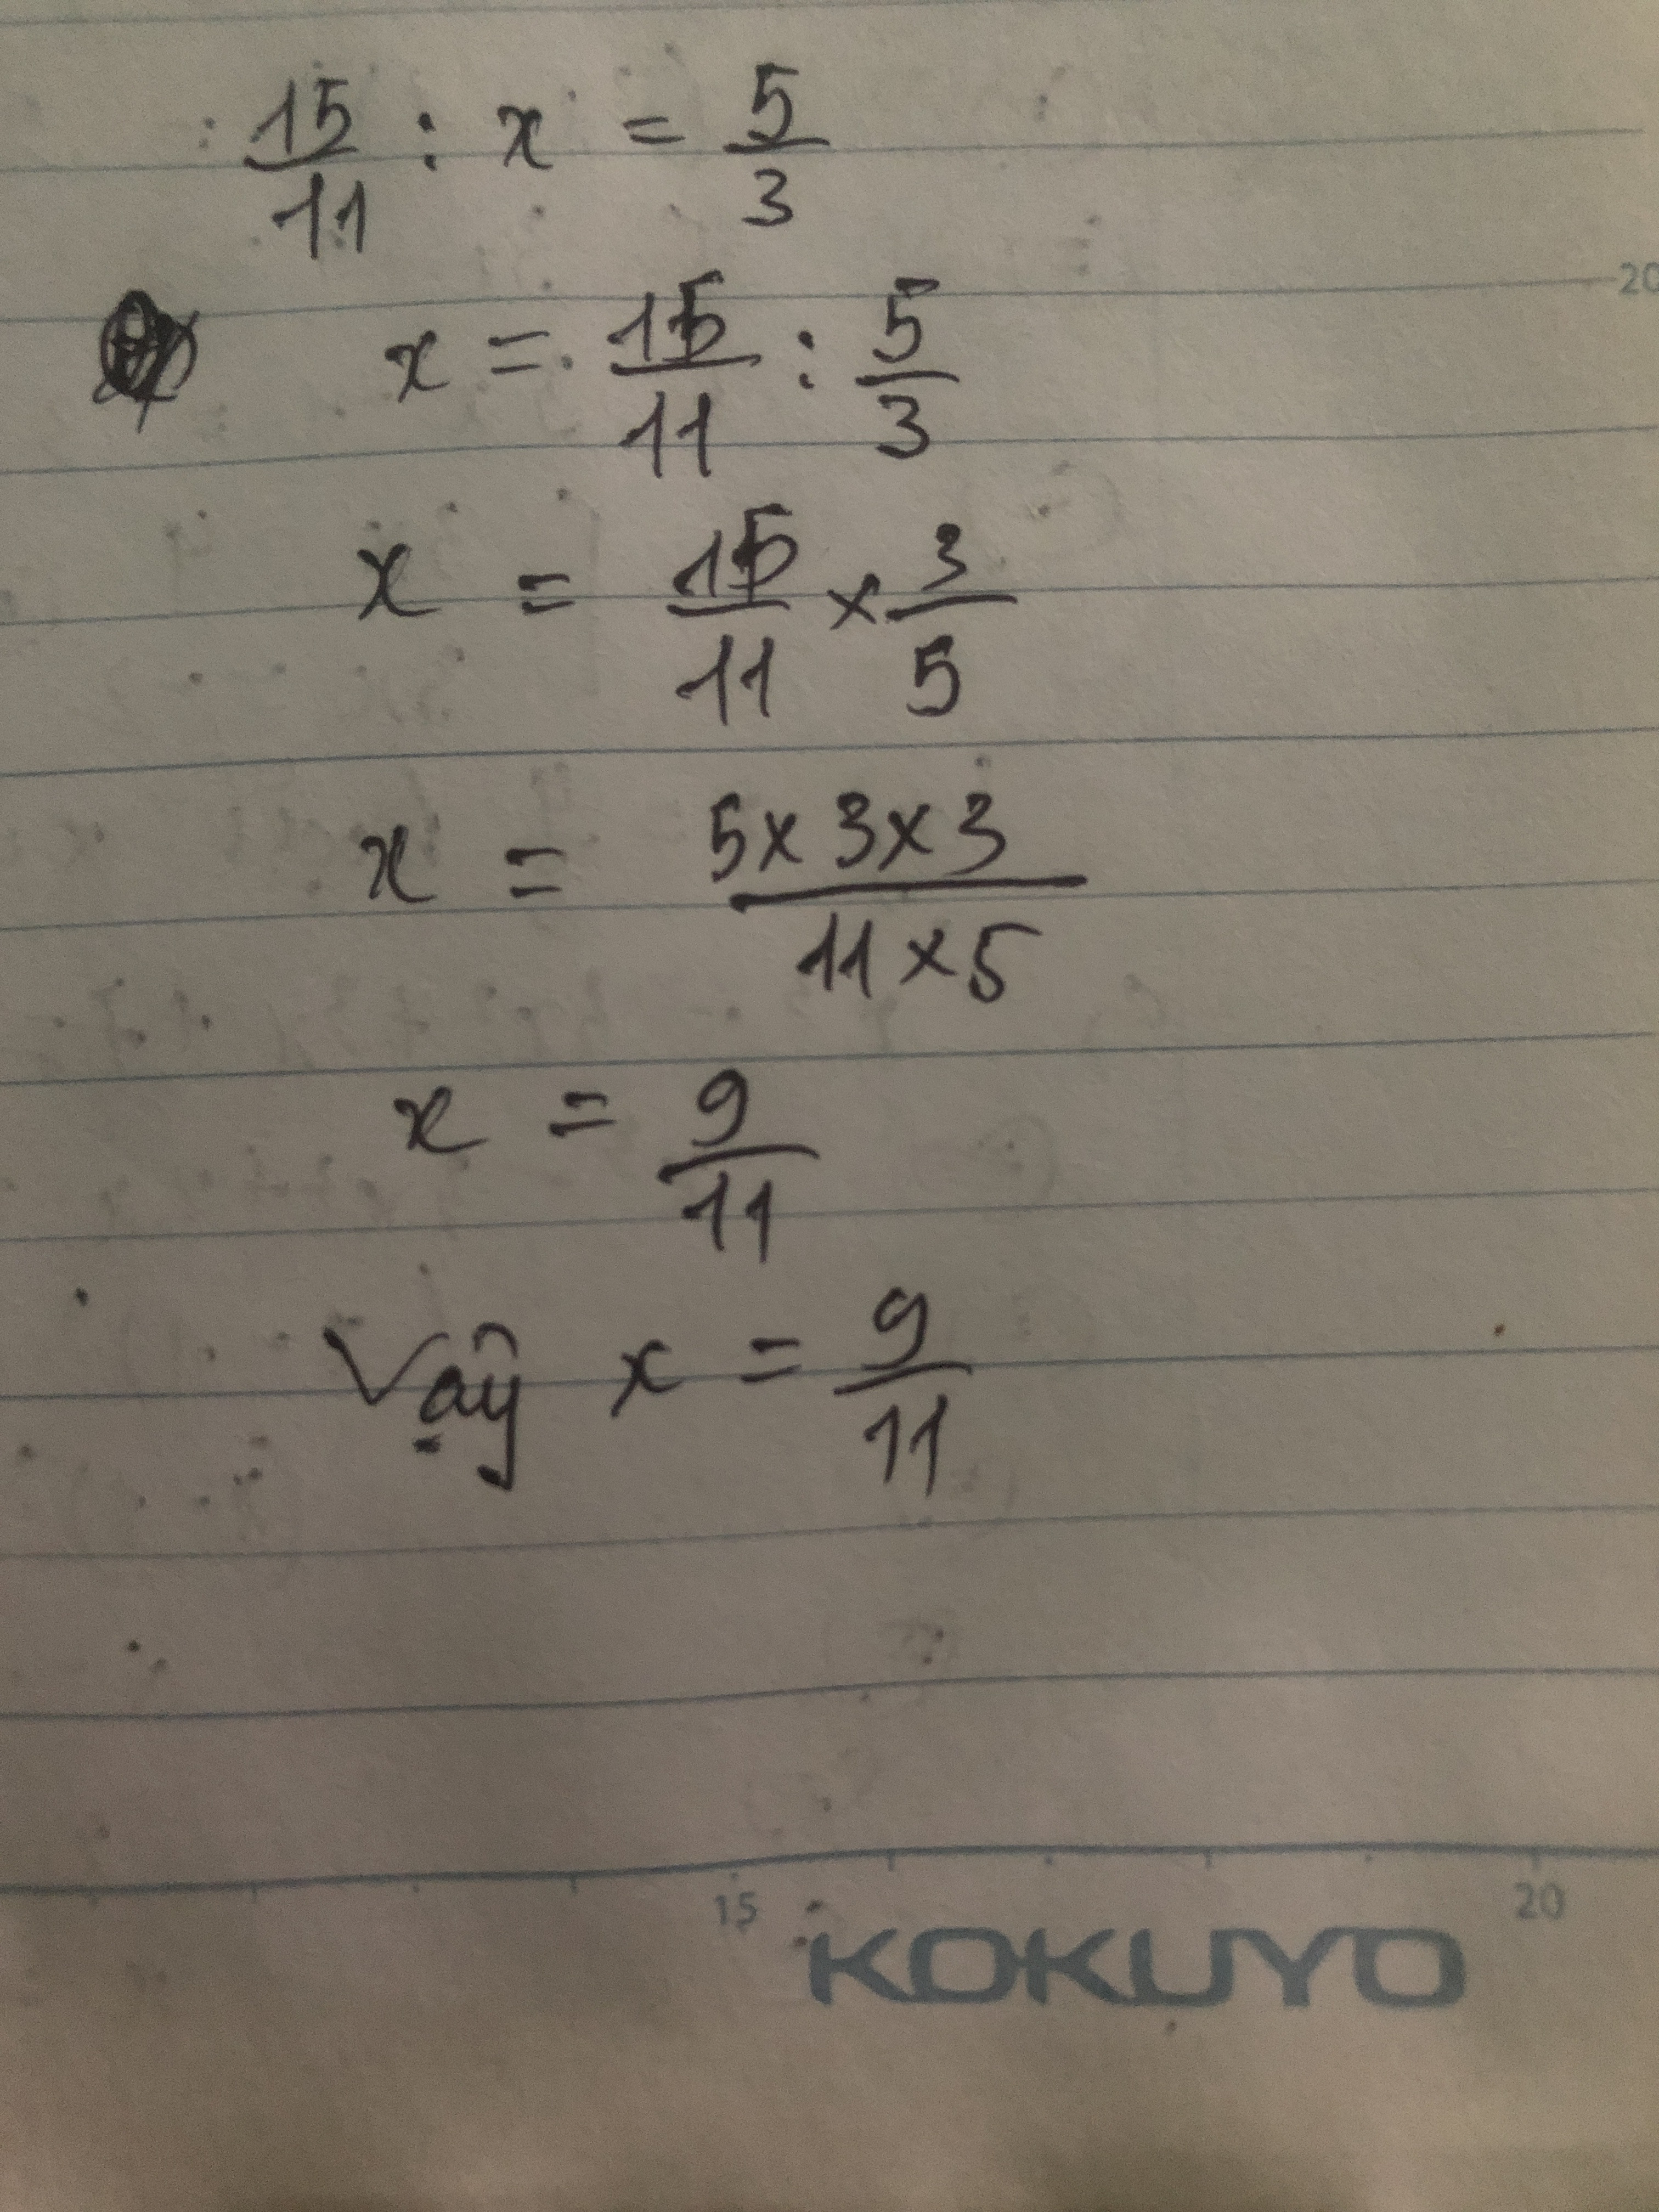 15/11 : x = 5/3
20
x = 15/11 : 5/3
x = 15/11 × 3/5
x = 5×3×3/11×5
x = 9/11
Vậy x = 9/11
15 20
KOKUYO